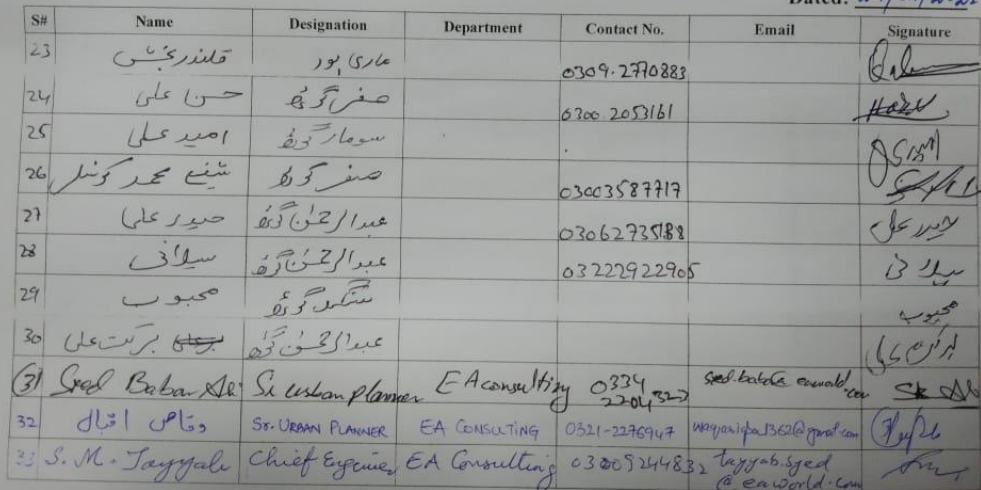 Dated:
S# Name Designation Department Contact No. Email Signature
23 قلندر بخش ماری پور 0309.2770883
24 حسن علی صفر گوٹھ 0300.2053161
25 امید علی سومار گوٹھ
26 شفیع محمد کونسلر صفر گوٹھ 03003587717
27 حیدر علی عبدالرحمٰن گوٹھ 03062735188 حیدر علی
28 سیلانی عبدالرحمٰن گوٹھ 03222922905 سیلانی
29 محبوب گوٹھ محبوب
30 برکت علی عبدالرحمٰن گوٹھ
31 Syed Babar Ali Sr urban planner EA consulting 0334 2204323
32 وقاص اقبال Sr. URBAN PLANNER EA CONSULTING 0321-2276947 waqasiqbal362@gmail.com
33 S. M. Tayyab Chief Engineer EA Consulting 03009244832 tayyab.syed
@eaworld.com